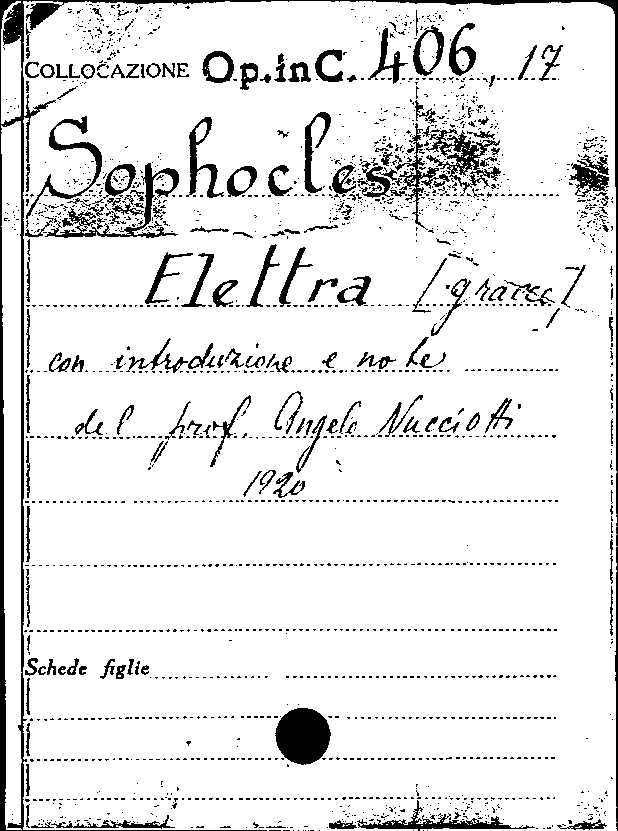 COLLOCAZIONE Op.inC. 406, 17
Sophocles
Elettra [greco]
con introduzione e note
del prof. Angelo Nucciotti
1920
Schede figlie